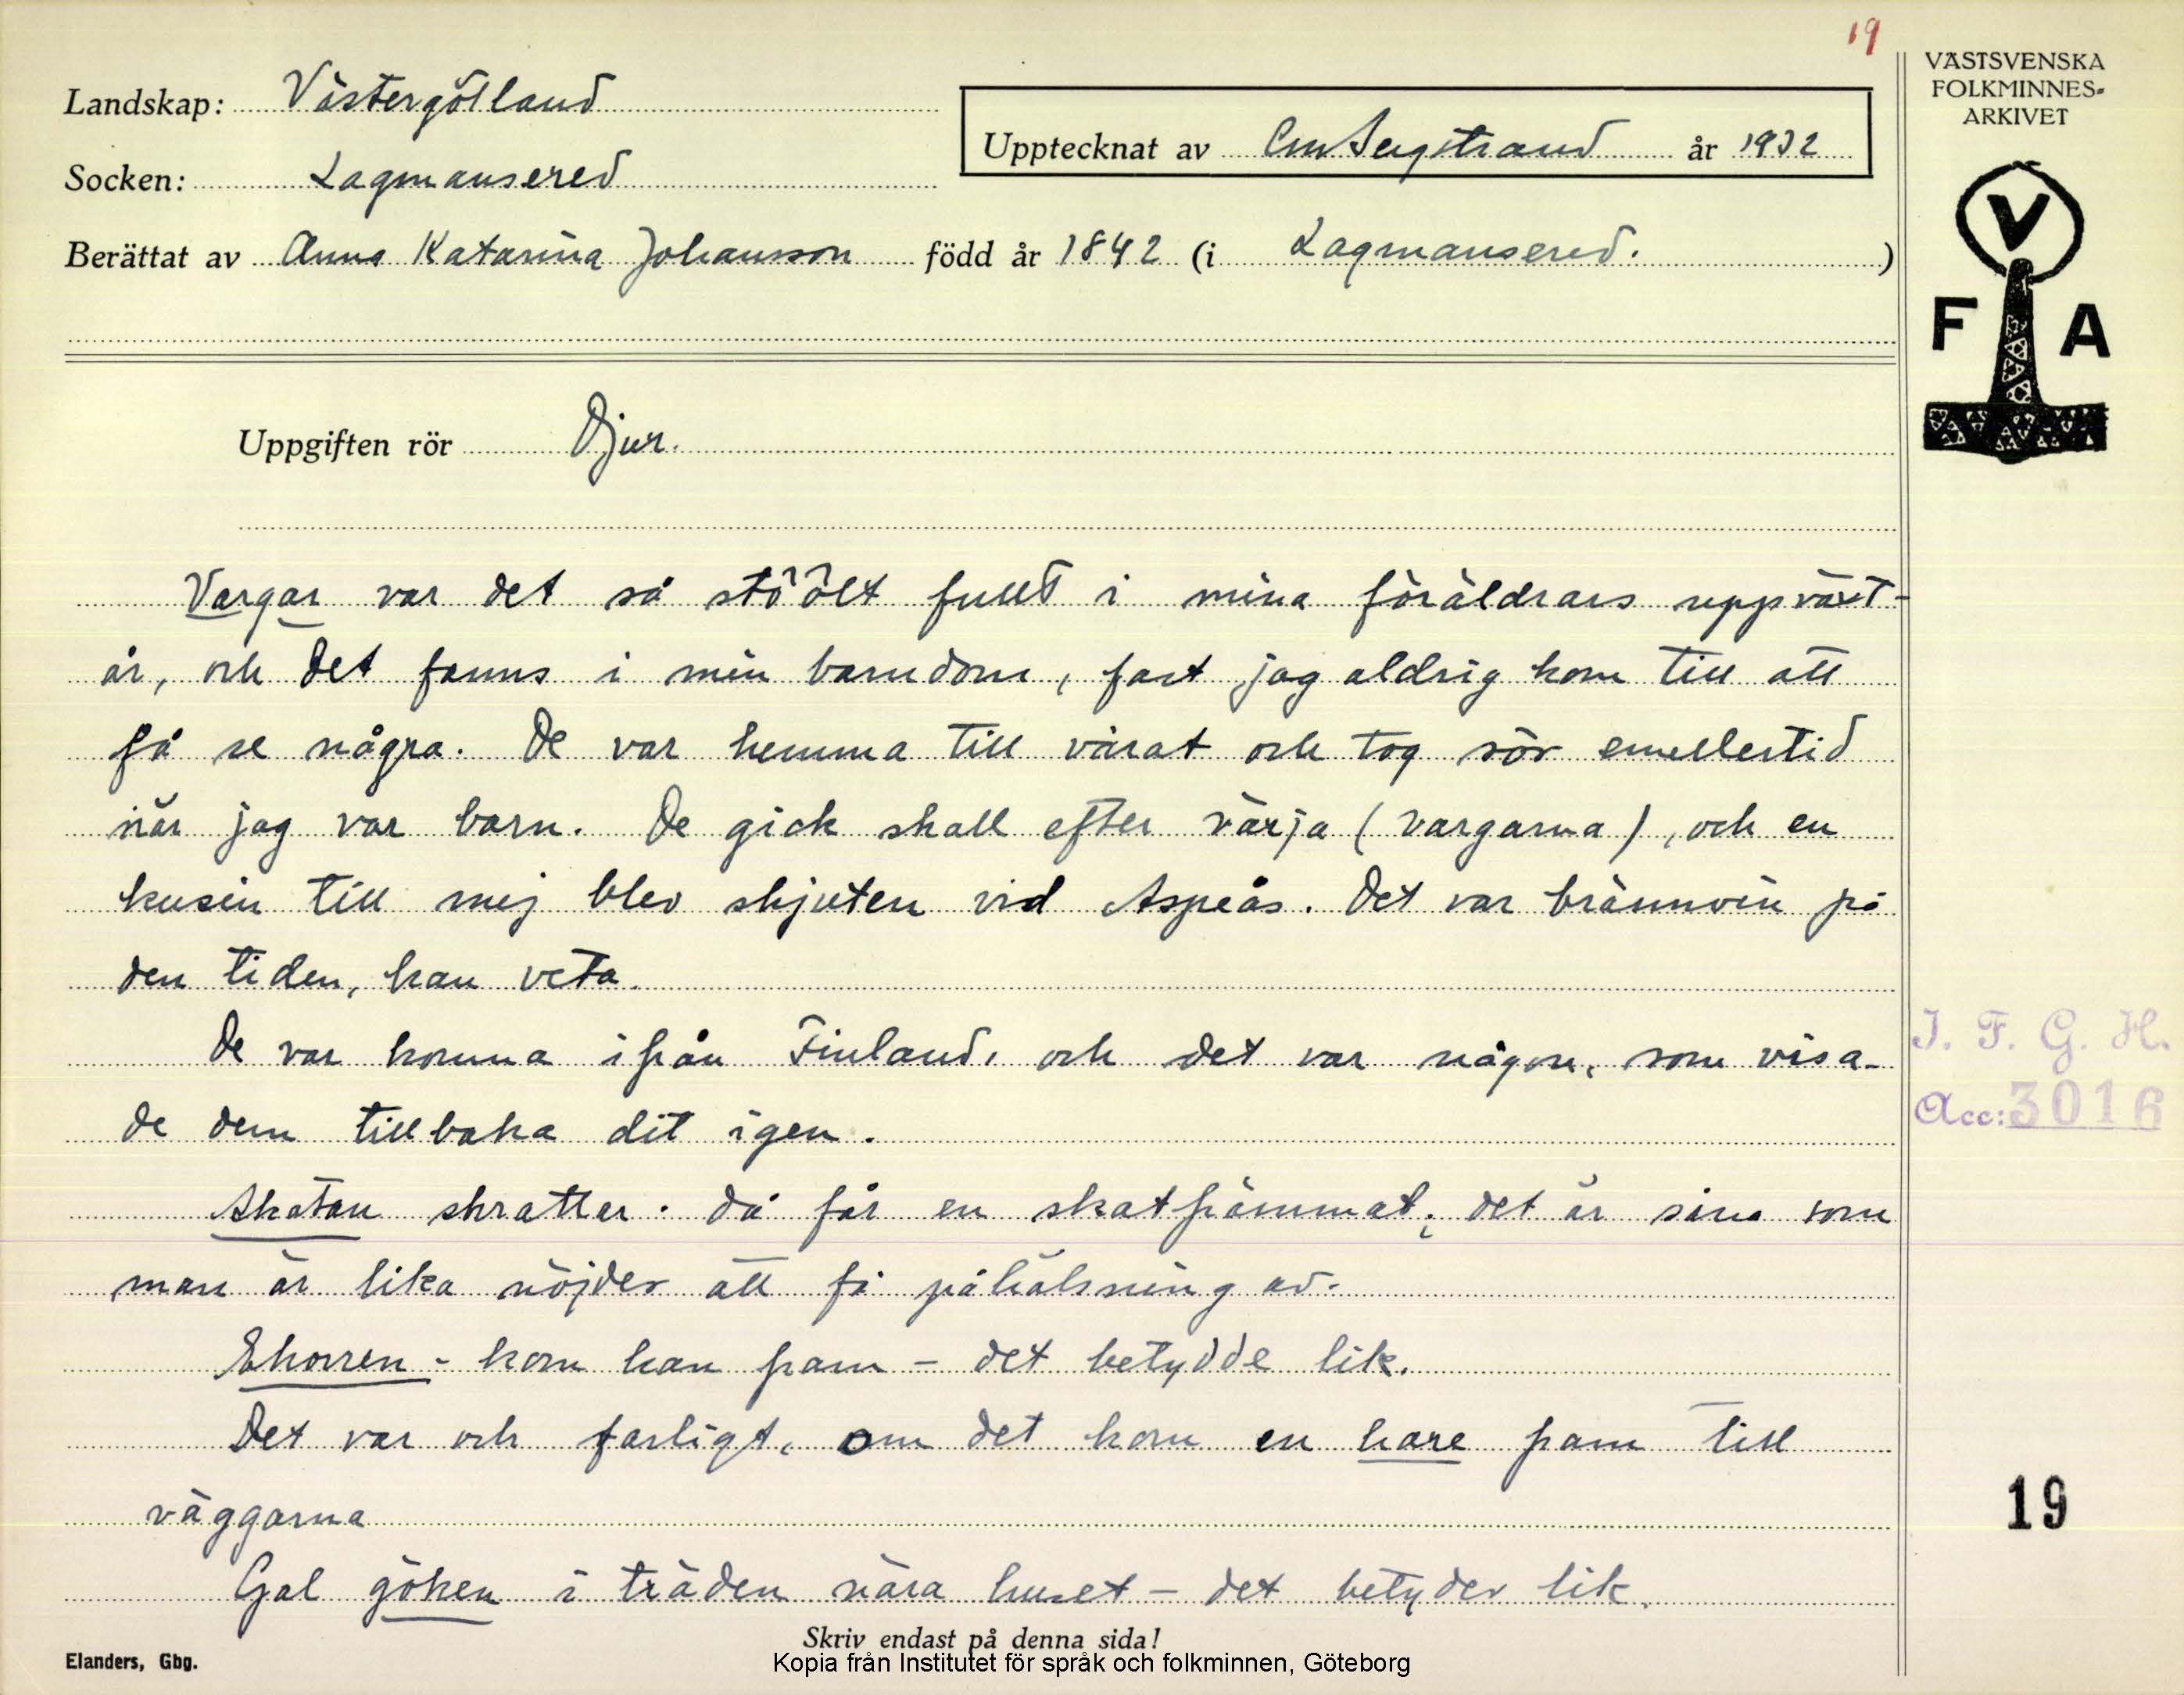 19
VÄSTSVENSKA
FOLKMINNES-
ARKIVET
Landskap: Västergötland
Upptecknat av CM Bergstrand år 1932
Socken: Lagmansered
Berättat av Anna Katarina Johansson född år 1842 (i Lagmansered. )
V
F A
Uppgiften rör Djur.
Vargar var det så stöölt fullt i mina föräldrars uppväxt-
år, och det fanns i min barndom, fast jag aldrig kom till att
få se några. De var hemma till vårat och tog sör emellertid
när jag var barn. De gick skall efter värja (vargarna), och en
kusin till mej blev skjuten vid Aspeås. Det var brännvin på
den tiden, kan veta.
De var komna ifrån Finland, och det var någon, som visa-
de dem tillbaka dit igen.
I. F. G. H.
Acc: 3016
Skatan skrattar. då får en skatfrämmat; det är såna som
man är lika nöjder att få påhälsning av.
Ekorren - kom han fram - det betydde lik.
Det var och farligt, om det kom en hare fram till
väggarna
19
Gal göken i träden nära huset - det betyder lik.
Skriv endast på denna sida!
Elanders, Gbg.
Kopia från Institutet för språk och folkminnen, Göteborg